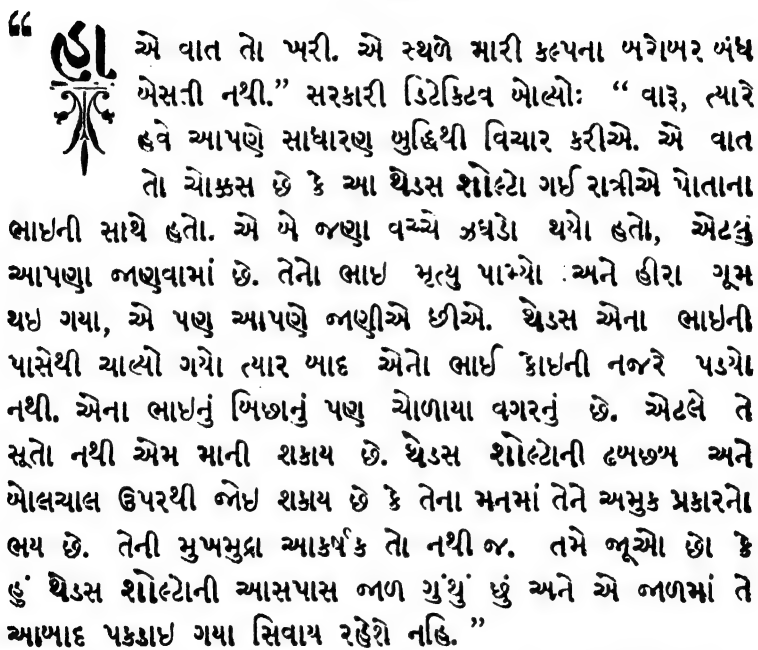 “હા એ વાત તો ખરી. એ સ્થળે મારી કલ્પના બરોબર બંધ
બેસતી નથી.” સરકારી ડિટેકિટવ બોલ્યોઃ “ વારૂ, ત્યારે
હવે આપણે સાધારણ બુદ્ધિથી વિચાર કરીએ. એ વાત
તો ચોક્કસ છે કે આ થેડસ શોલ્ટો ગઈ રાત્રીએ પોતાના
ભાઇની સાથે હતો. એ બે જણા વચ્ચે ઝઘડો થયો હતો, એટલું
આપણા જાણવામાં છે. તેનો ભાઇ મૃત્યુ પામ્યો અને હીરા ગૂમ
થઇ ગયા, એ પણ આપણે જાણીએ છીએ. થેડસ એના ભાઇની
પાસેથી ચાલ્યો ગયો ત્યાર બાદ એનો ભાઈ કોઇની નજરે પડયો
નથી. એના ભાઇનું બિછાનું પણ ચોળાયા વગરનું છે. એટલે તે
સૂતો નથી એમ માની શકાય છે. થેડસ શોલ્ટોની ઢબછબ અને
બોલચાલ ઉપરથી જોઇ શકાય છે કે તેના મનમાં તેને અમુક પ્રકારનો
ભય છે. તેની મુખમુદ્રા આકર્ષક તો નથી જ. તમે જૂઓ છો કે
હું થેડસ શોલ્ટોની આસપાસ જાળ ગુંથું છું અને એ જાળમાં તે
આબાદ પકડાઇ ગયા સિવાય રહેશે નહિ. ”